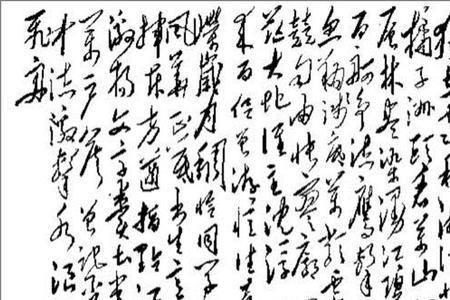 橘子洲头看万山
层林尽染漫江碧
百舸争流鹰击
鱼翔浅底万类霜
竞自由怅寥廓
茫大地谁主沉浮
来百侣曾游忆往
嵘岁月稠恰同学
风华正茂书生意
挥斥方遒指点江
激扬文字粪土当
万户侯曾记否
中流击水浪
飞舟